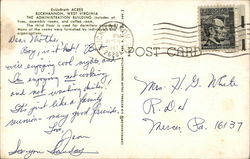 EvUnBreth ACRES
BUCKHANNON, WEST VIRGINIA
THE ADMINISTRATION BUILDING includes offices, assembly rooms, and coffee room.
The third floor is used for dormitory
Many of the rooms were furnished by individuals and organizations.
POST CARD
Dear Mother
Boy, is it hot! But
we're enjoying cool nights and
I'm enjoying not cooking
and not working
It's just like a family
reunion - many good friends.
Love
Jean
See you Sunday
Mrs. H. G. White
R. D. 4
Mercer, Pa. 16137